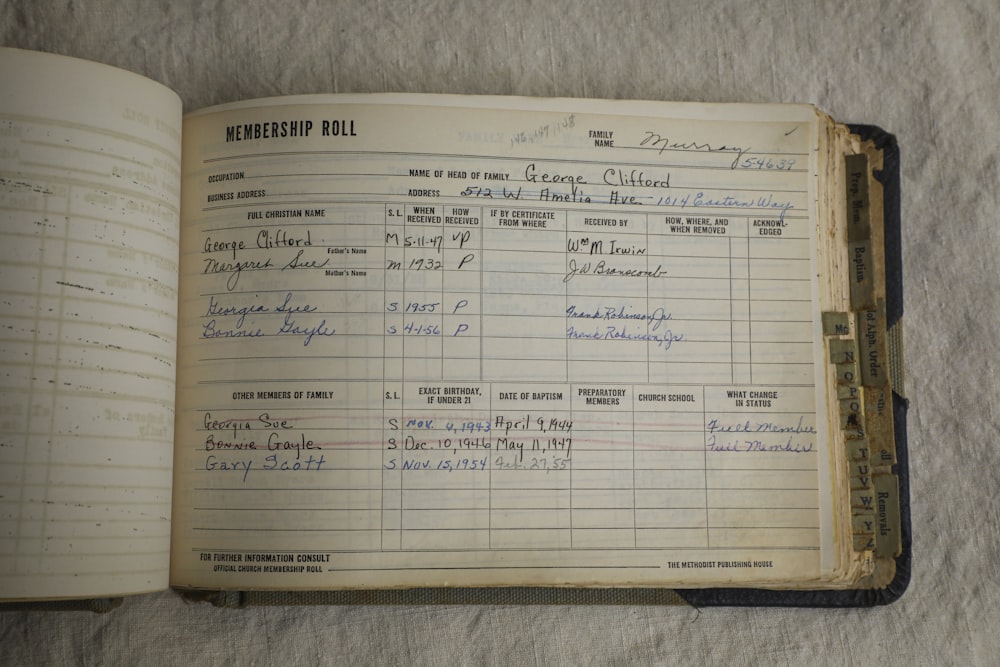 MEMBERSHIP ROLL
FAMILY NAME Murray
54639
OCCUPATION NAME OF HEAD OF FAMILY George Clifford
BUSINESS ADDRESS ADDRESS 512 W. Amelia Ave 1014 Eastern Way
FULL CHRISTIAN NAME S. L. WHEN RECEIVED HOW RECEIVED IF BY CERTIFICATE FROM WHERE RECEIVED BY HOW, WHERE, AND WHEN REMOVED ACKNOWLEDGED
George Clifford M 5-11-47 VP Wm M Irwin
Father's Name
Margaret Sue m 1932 P J.W. Branscomb
Mother's Name
Georgia Sue S 1955 P Frank Robinson, Jr.
Bonnie Gayle S 4-1-56 P Frank Robinson, Jr.
OTHER MEMBERS OF FAMILY S. L. EXACT BIRTHDAY, IF UNDER 21 DATE OF BAPTISM PREPARATORY MEMBERS CHURCH SCHOOL WHAT CHANGE IN STATUS
Georgia Sue S Nov. 4, 1943 April 9, 1944 Full Member
Bonnie Gayle S Dec. 10, 1946 May 11, 1947 Full Member
Gary Scott S Nov. 15, 1954 Feb. 27, '55
FOR FURTHER INFORMATION CONSULT
OFFICIAL CHURCH MEMBERSHIP ROLL THE METHODIST PUBLISHING HOUSE
Prep. Mem.
Baptism
Alph. Order
Removals
Mc
N
O
P
Q
S
T
U
V
W
Y
Z